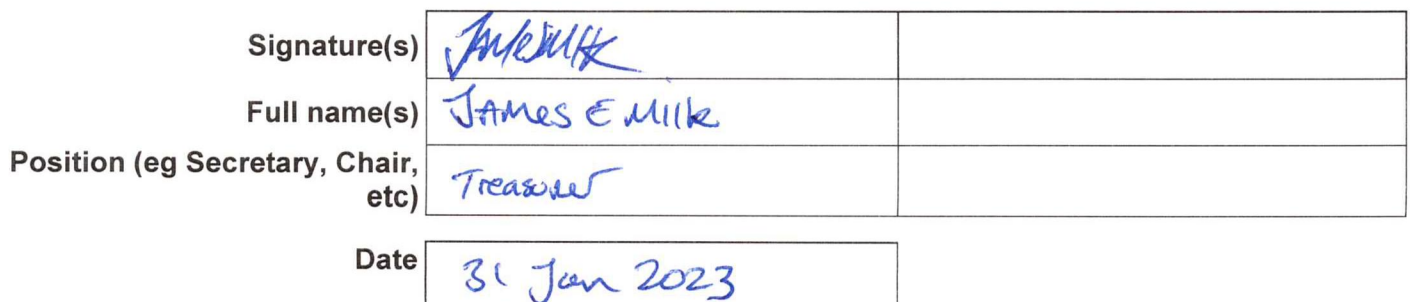 Signature(s)
Full name(s) JAMes E Milk
Position (eg Secretary, Chair,
etc) Treasurer
Date 31 Jan 2023